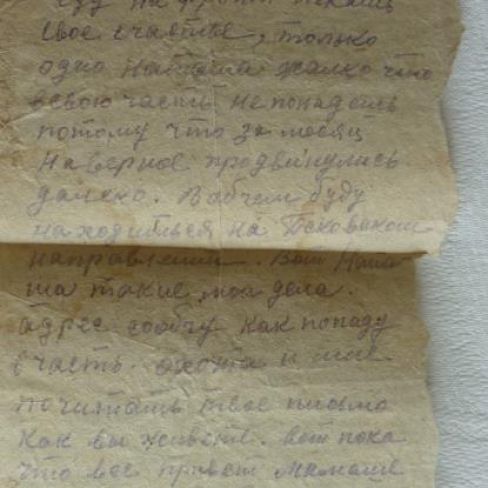 еду на фронт искать
свое счастье, только
одно Наташа жалко что
в свою часть не попадешь
потому что за месяц
наверное продвинулись
далеко. Вобчем буду
находиться на Псковском
направлении. Вот Ната
ша такие мои дела.
адрес сообчу как попаду
в часть. охота и мне
почитать твое письмо
как вы живете. вот пока
что все привет мамаше